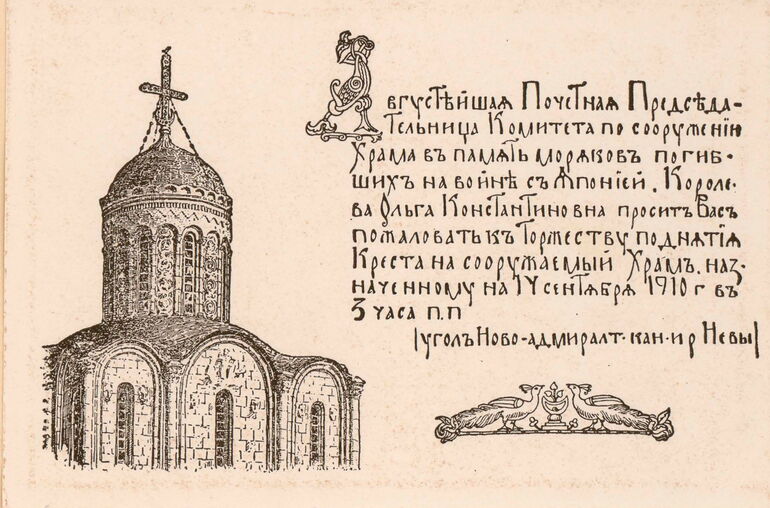 Августѣйшая Почетная Предсѣда-
тельница Комитета по сооруженію
Храма въ память моряковъ погиб-
шихъ на войнѣ съ Японіей, Короле-
ва Ольга Константиновна проситъ Васъ
пожаловать къ Торжеству поднятія
Креста на сооружаемый Храмъ, наз-
наченному на 14 сентября 1910 г въ
3 часа п.п
(уголъ Ново-адмиралт. кан. и р Невы)